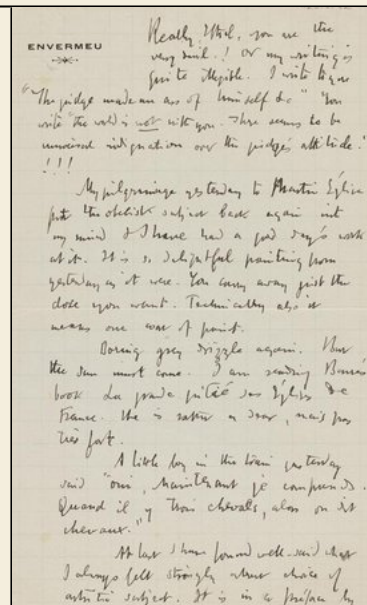 ENVERMEU
Really Ethel, you are the
very devil! Or my writing is
quite illegible. I write to you
"The judge made an ass of himself &c" You
write "the world is not with you. There seems to be
universal indignation over the judge's attitude."
!!!
My pilgrimage yesterday to Martin Église
put the obelisk subject back again into
my mind & I have had a good day's work
at it. It is so delightful painting from
yesterday as it were. You carry away just the
dose you want. Technically also it
means one coat of paint.
Boring grey drizzle again. But
the sun must come. I am sending Barrès
book La grande pitié des Églises de
France. He is rather a dear, mais pas
très fort.
A little boy in the train yesterday
said "oui, maintenant je comprends.
Quand il y trois chevals, alors on dit
chevaux."
At last I have found well-said what
I always felt strongly about choice of
artistic subject. It is in a preface by